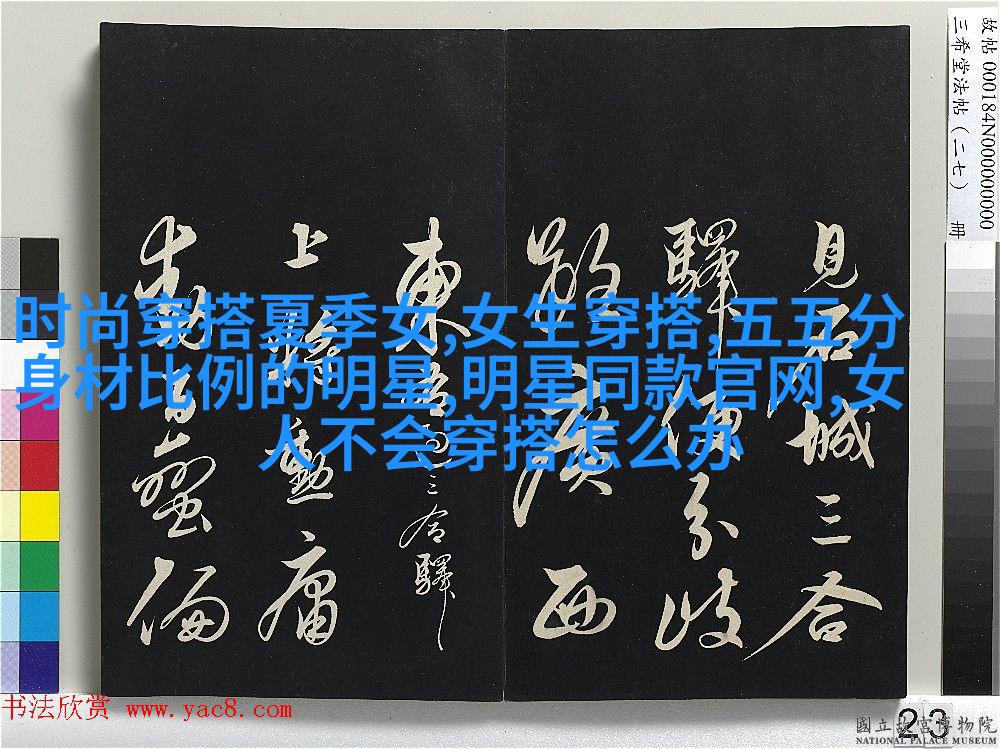 故帖 000184N000000000
三希堂法帖(二七) 冊
見石城三合
驛 分岐
廣西
東 三合驛
上 庸
时尚穿搭夏季女,女生穿搭,五五分
身材比例的明星,明星同款官网,女
人不会穿搭怎么办
书法欣赏 www.yac8.com
23
國立故宮博物院
NATIONAL PALACE MUSEUM